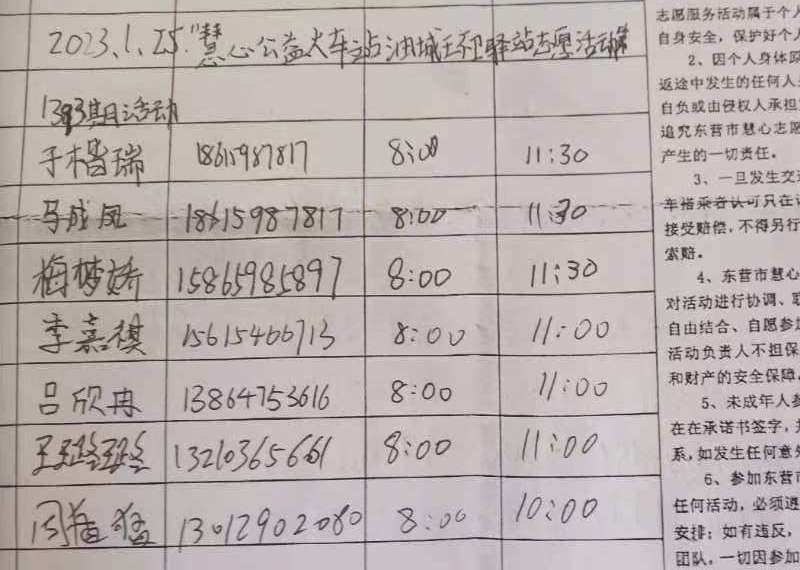 2023.1.25."慧心公益火车站油城环卫驿站志愿活动
1393期活动
于楷瑞 18615987817 8:00 11:30
马成凤 18615987817 8:00 11:30
梅梦娇 15865985897 8:00 11:30
李嘉祺 15615466713 8:00 11:00
吕欣冉 13864753616 8:00 11:00
13210365661 8:00 11:00
周 猛 13012902080 8:00 10:00
志愿服务活动属于个人
自身安全，保护好个人
2、因个人身体原
返途中发生的任何人
自负或由侵权人承担
追究东营市慧心志愿
产生的一切责任。
3、一旦发生交通
车搭乘者认可只在
接受赔偿，不得另行
索赔。
4、东营市慧心
对活动进行协调、联
自由结合、自愿参加
活动负责人不担保
和财产的安全保障
5、未成年人参
在在承诺书签字，
系，如发生任何意外
6、参加东营市
任何活动，必须遵
安排；如有违反，
团队，一切因参加